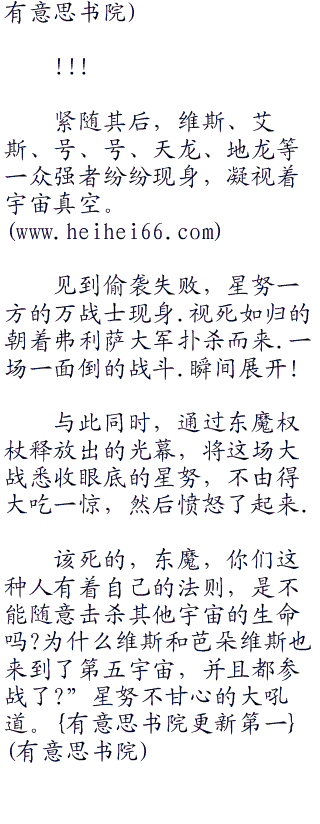 有意思书院)
!!!
紧随其后，维斯、艾
斯、号、号、天龙、地龙等
一众强者纷纷现身，凝视着
宇宙真空。
(www.heihei66.com)
见到偷袭失败，星努一
方的万战士现身.视死如归的
朝着弗利萨大军扑杀而来.一
场一面倒的战斗.瞬间展开!
与此同时，通过东魔权
杖释放出的光幕，将这场大
战悉收眼底的星努，不由得
大吃一惊，然后愤怒了起来.
该死的，东魔，你们这
种人有着自己的法则，是不
能随意击杀其他宇宙的生命
吗?为什么维斯和芭朵维斯也
来到了第五宇宙，并且都参
战了?”星努不甘心的大吼
道。{有意思书院更新第一}
(有意思书院)